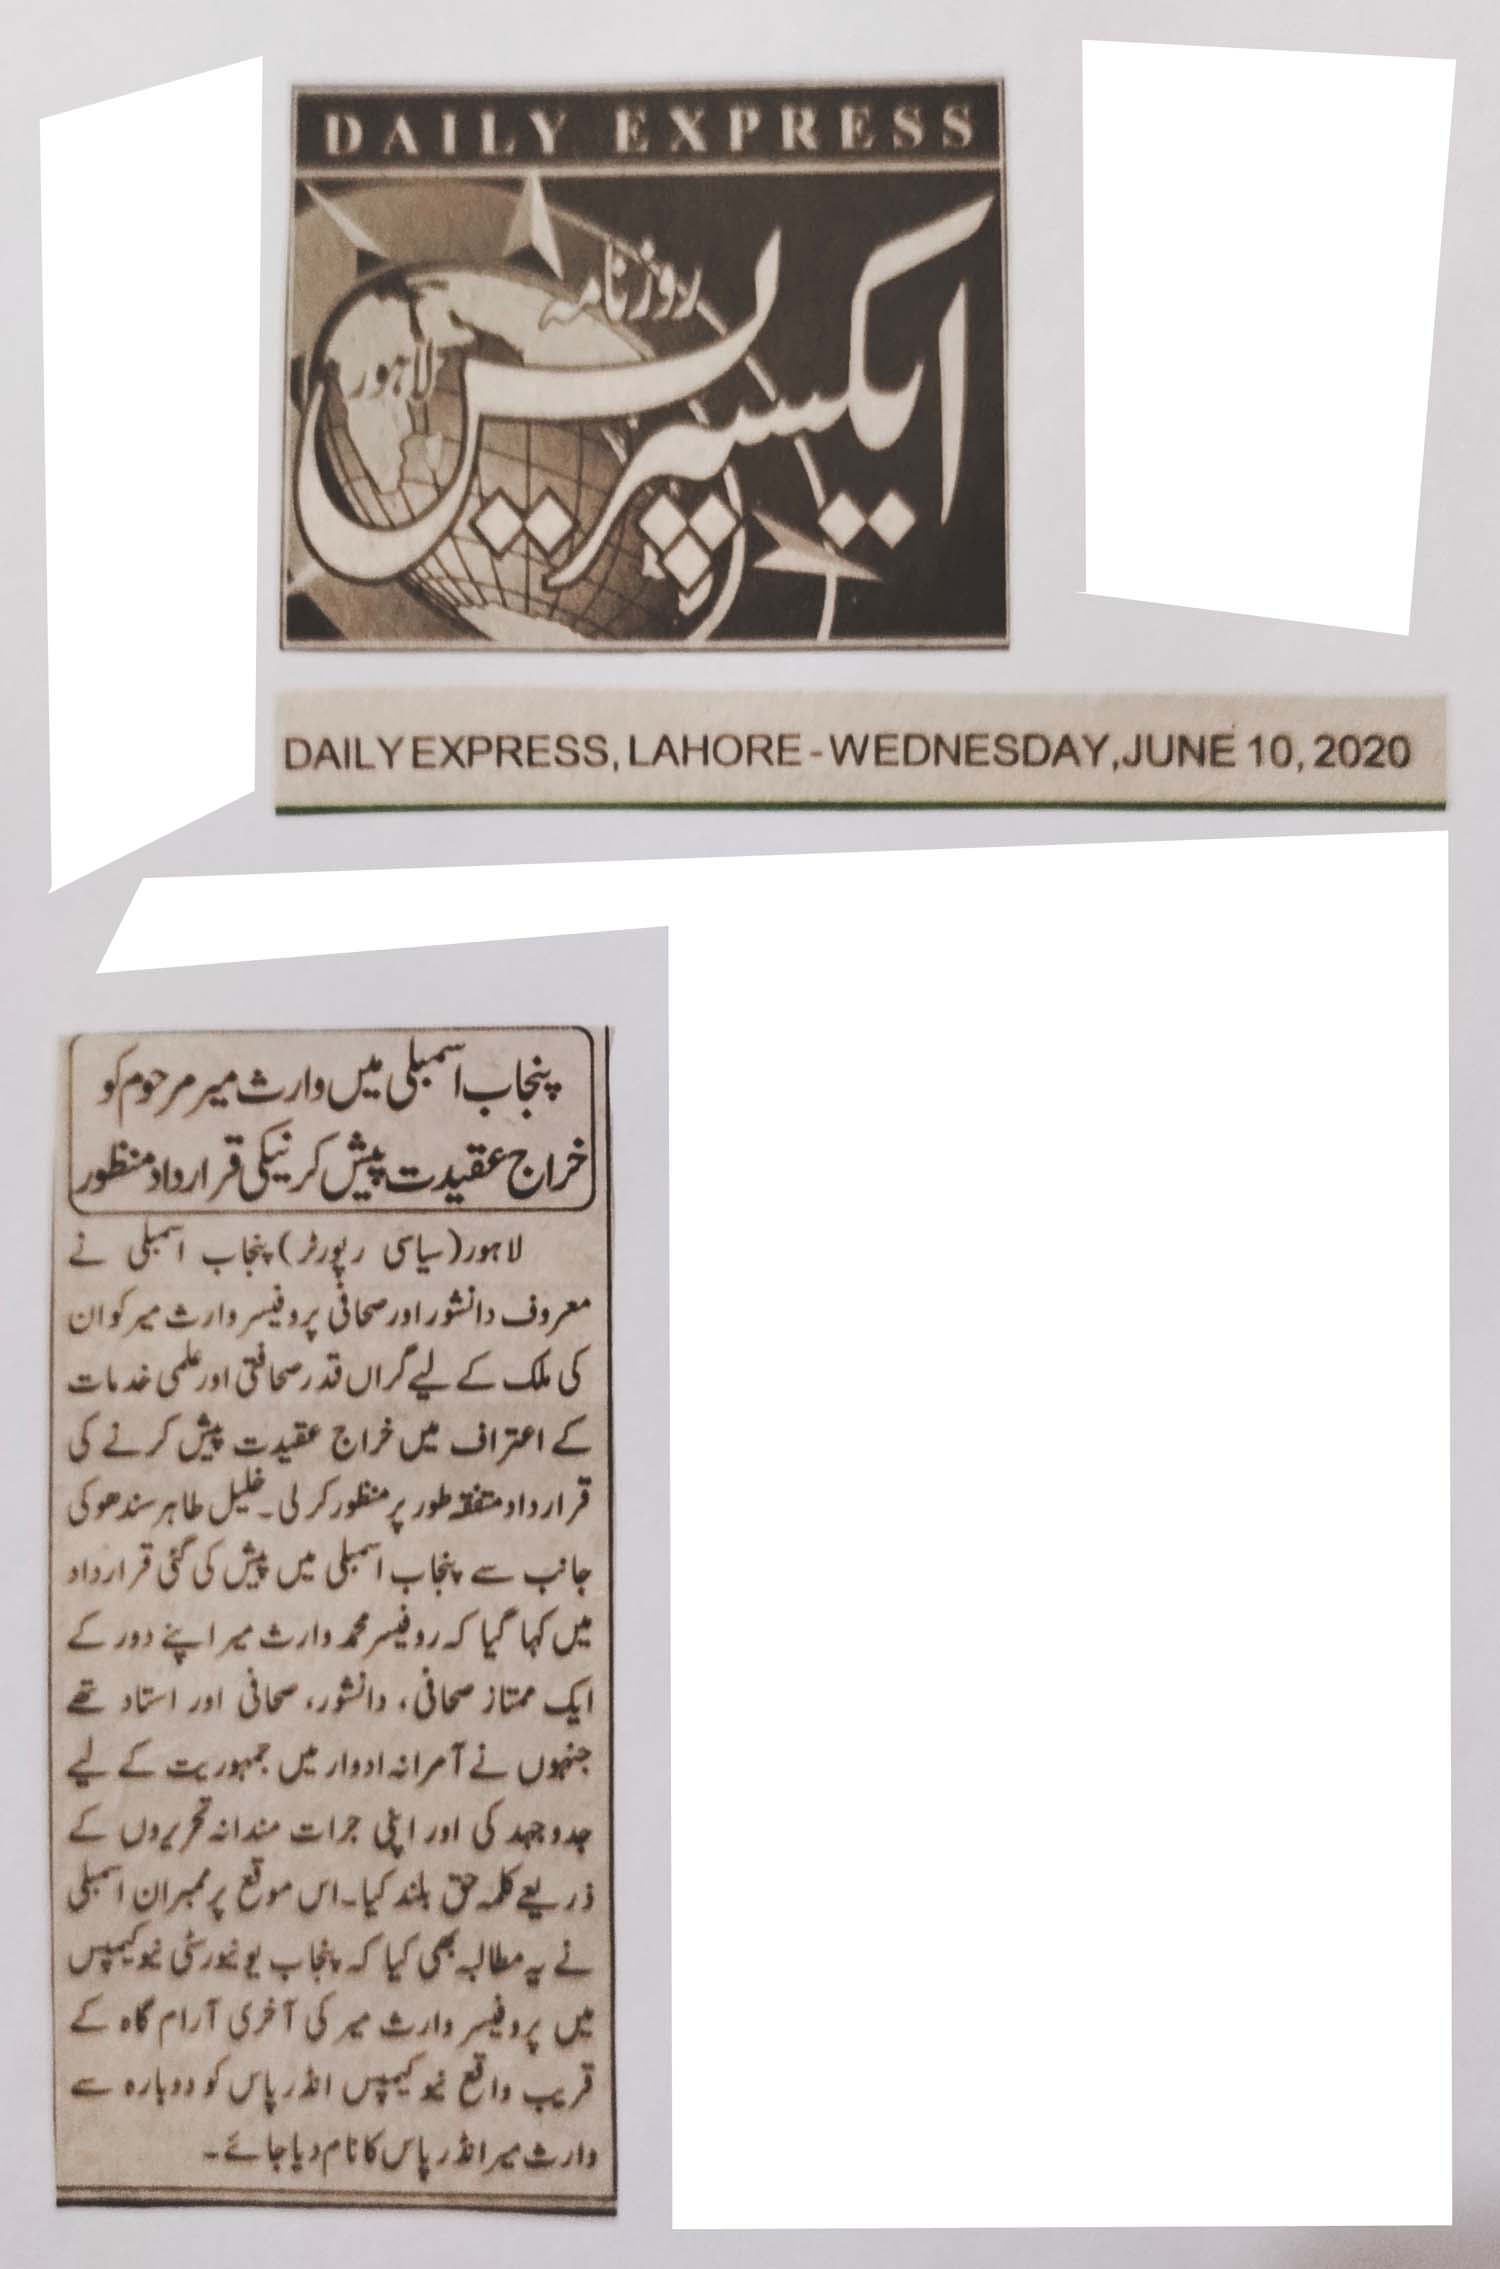 DAILY EXPRESS
روزنامہ
ایکسپریس
لاہور
DAILY EXPRESS, LAHORE - WEDNESDAY, JUNE 10, 2020
پنجاب اسمبلی میں وارث میر مرحوم کو
خراج عقیدت پیش کرنیکی قرارداد منظور
لاہور(سیاسی رپورٹر)پنجاب اسمبلی نے
معروف دانشور اور صحافی پروفیسر وارث میر کو ان
کی ملک کے لیے گراں قدر صحافتی اور علمی خدمات
کے اعتراف میں خراج عقیدت پیش کرنے کی
قرارداد متفقہ طور پر منظور کر لی۔ خلیل طاہر سندھو کی
جانب سے پنجاب اسمبلی میں پیش کی گئی قرارداد
میں کہا گیا کہ روفیسر محمد وارث میر اپنے دور کے
ایک ممتاز صحافی، دانشور، صحافی اور استاد تھے
جنہوں نے آمرانہ ادوار میں جمہوریت کے لیے
جدوجہد کی اور اپنی جرات مندانہ تحریروں کے
ذریعے کلمہ حق بلند کیا۔ اس موقع پر ممبران اسمبلی
نے یہ مطالبہ بھی کیا کہ پنجاب یونیورسٹی نیو کیمپس
میں پروفیسر وارث میر کی آخری آرام گاہ کے
قریب واقع نیو کیمپس انڈر پاس کو دوبارہ سے
وارث میر انڈر پاس کا نام دیا جائے۔